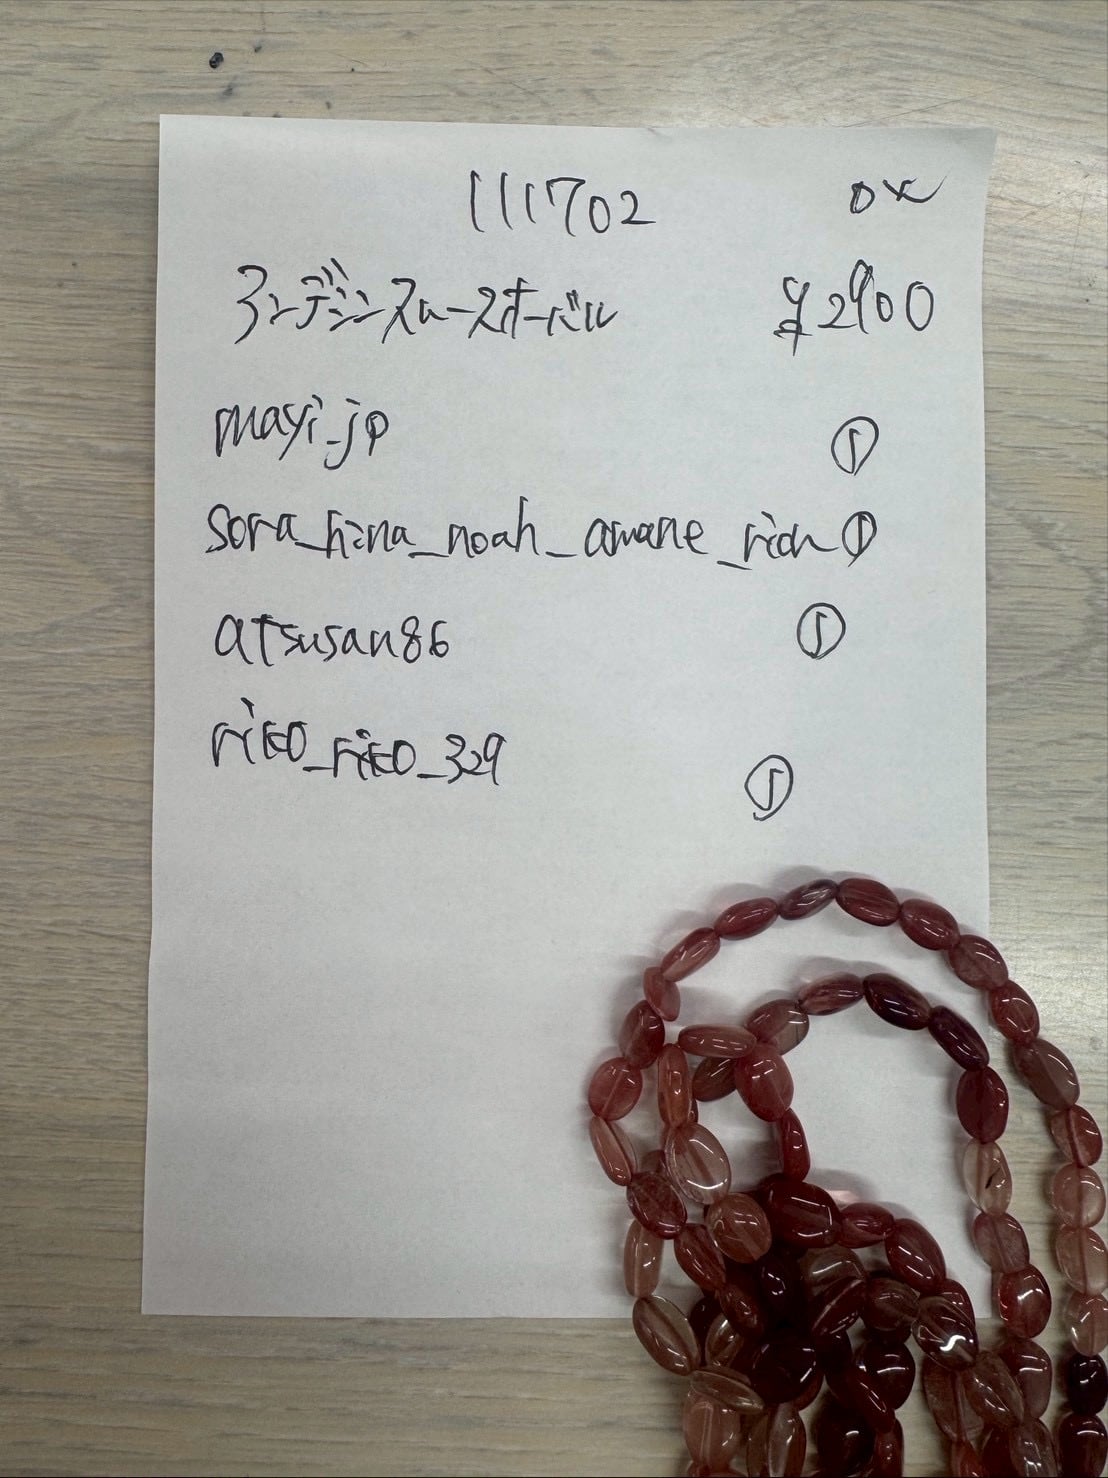 111702 OK
アンデシンスムースオーバル ¥2900
mayi_jp ①
sora_hina_noah_amane_rich ①
atsusan86 ①
riko_riko_329 ①